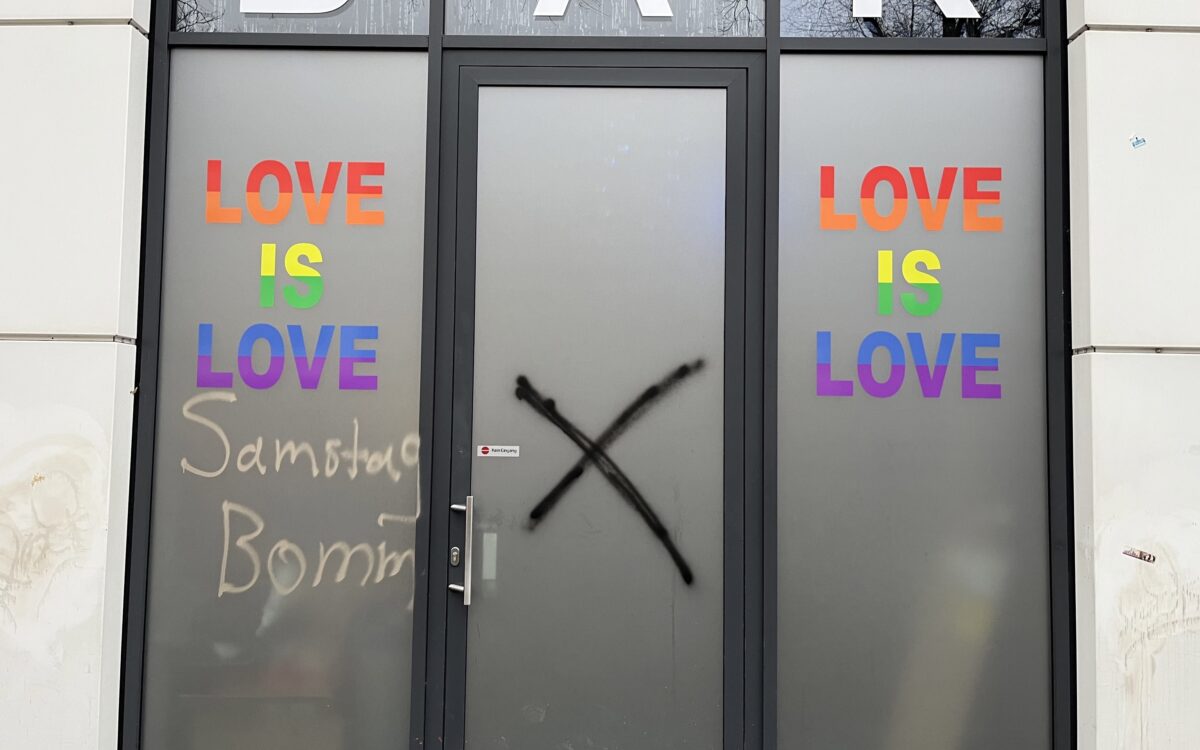 BAR
LOVE
IS
LOVE
Samstag
Bomm
Kein Eingang
LOVE
IS
LOVE